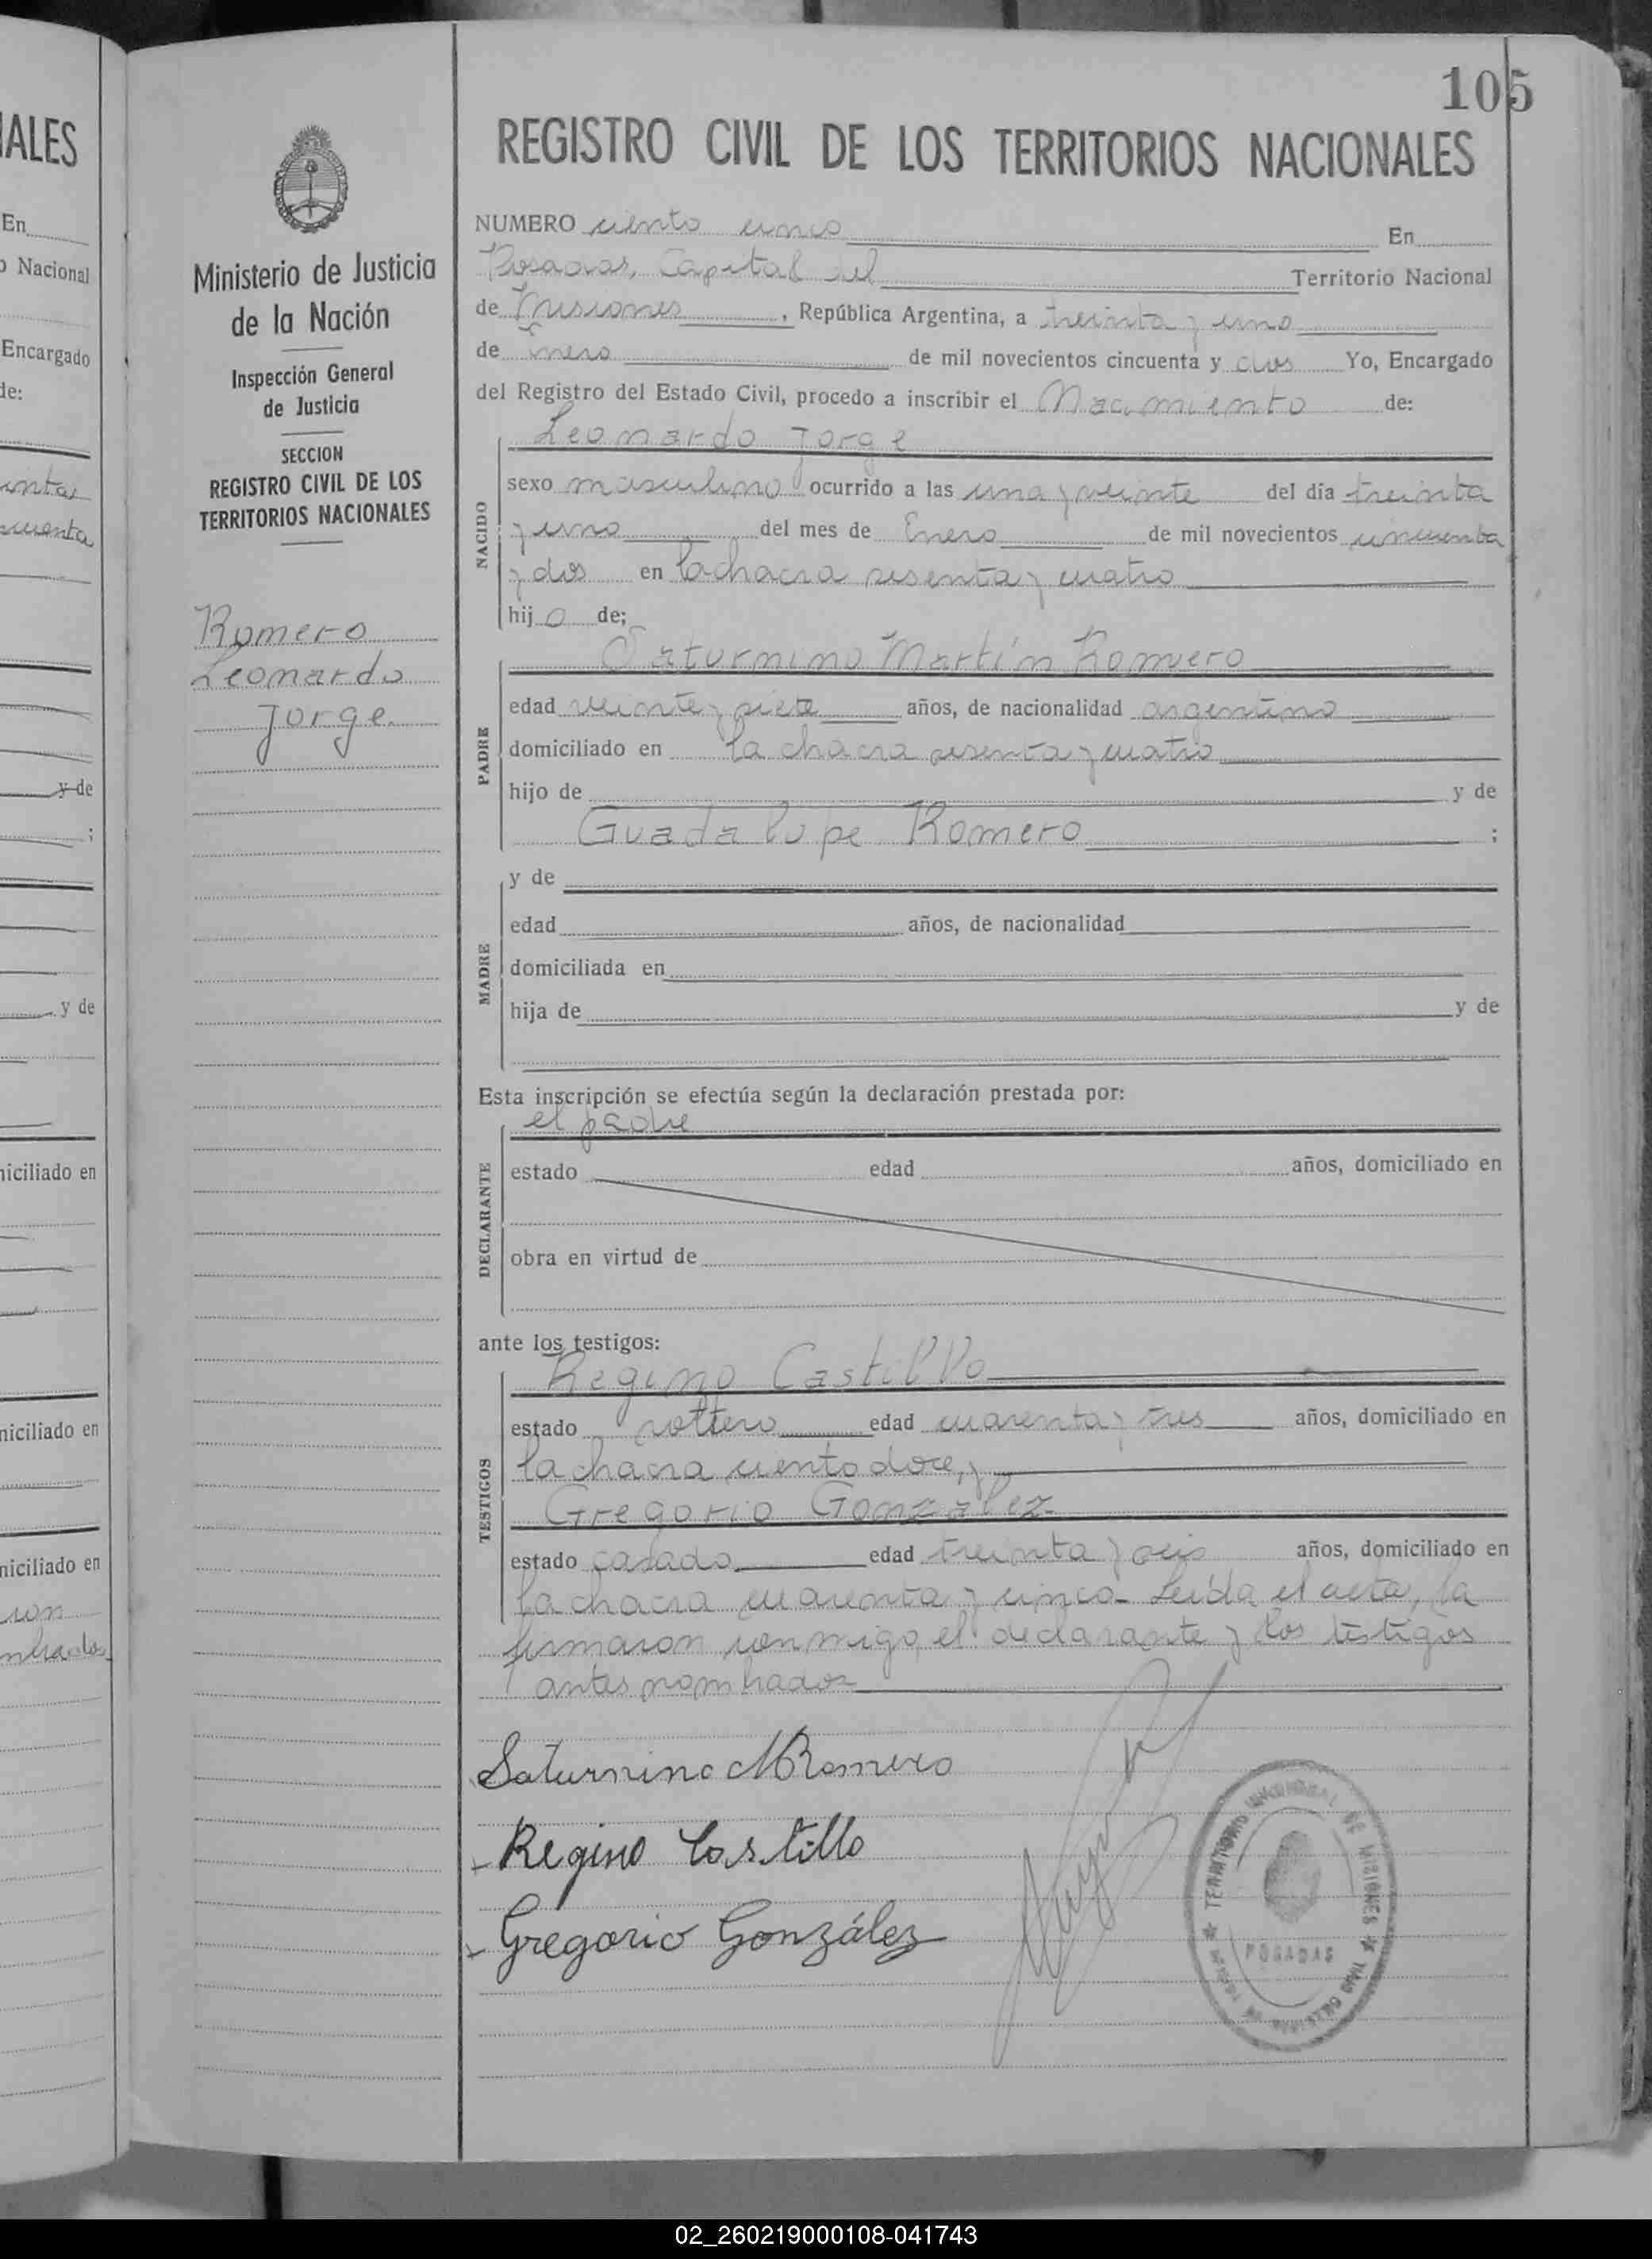 105
REGISTRO CIVIL DE LOS TERRITORIOS NACIONALES
Ministerio de Justicia
de la Nación
Inspección General
de Justicia
SECCION
REGISTRO CIVIL DE LOS
TERRITORIOS NACIONALES
Romero
Leonardo
Jorge
NUMERO ciento cinco En
Posadas, Capital del Territorio Nacional
de Misiones, República Argentina, a treinta y uno
de Enero de mil novecientos cincuenta y dos Yo, Encargado
del Registro del Estado Civil, procedo a inscribir el Nacimiento de:
Leonardo Jorge
NACIDO
sexo masculino ocurrido a las una y veinte del día treinta
y uno del mes de Enero de mil novecientos cincuenta
y dos en la chacra sesenta y cuatro
hijo de;
Saturnino Martín Romero
PADRE
edad veinte y siete años, de nacionalidad argentino
domiciliado en la chacra sesenta y cuatro
hijo de y de
Guadalupe Romero ;
MADRE
y de
edad años, de nacionalidad
domiciliada en
hija de y de
Esta inscripción se efectúa según la declaración prestada por:
el padre
DECLARANTE
estado edad años, domiciliado en
obra en virtud de
ante los testigos:
Regino Castillo
TESTIGOS
estado soltero edad cuarenta y tres años, domiciliado en
la chacra ciento doce, y
Gregorio González
estado casado edad treinta y seis años, domiciliado en
la chacra cuarenta y cinco. Leída el acta, la
firmaron conmigo, el declarante y los testigos
antes nombrados
Saturnino M Romero
Regino Castillo
Gregorio González
TERRITORIO NACIONAL DE MISIONES
POSADAS
ALES
En
o Nacional
Encargado
de:
y de
y de
niciliado en
niciliado en
niciliado en
02_260219000108-041743